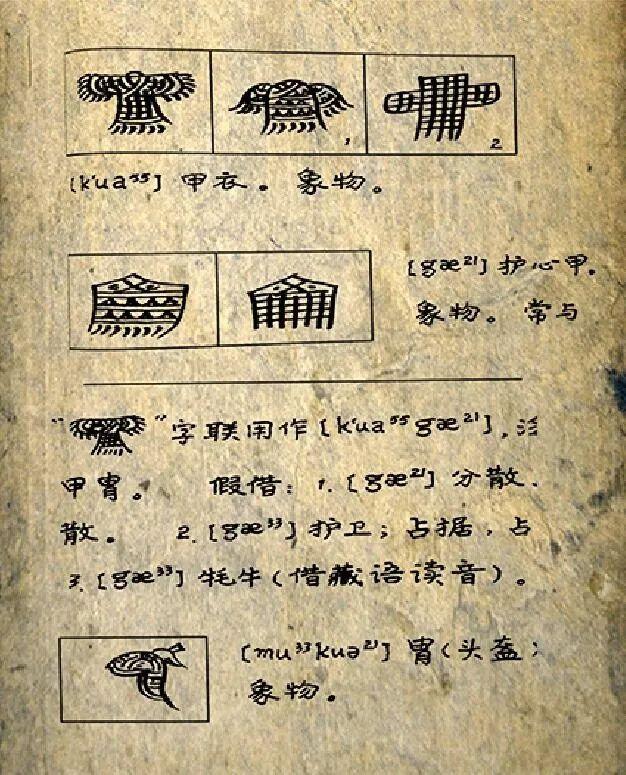 1
2
[k'ua⁵⁵] 甲衣。 象物。
[gæ²¹] 护心甲。
象物。 常与
“ ”字联用作[k'ua⁵⁵gæ²¹],
甲胄。 假借: 1. [gæ²¹] 分散.
散。 2. [gæ³³] 护卫; 占据, 占
3. [gæ³³] 牦牛(借藏语读音)。
[mu³³kuə²¹] 胄(头盔)
象物。